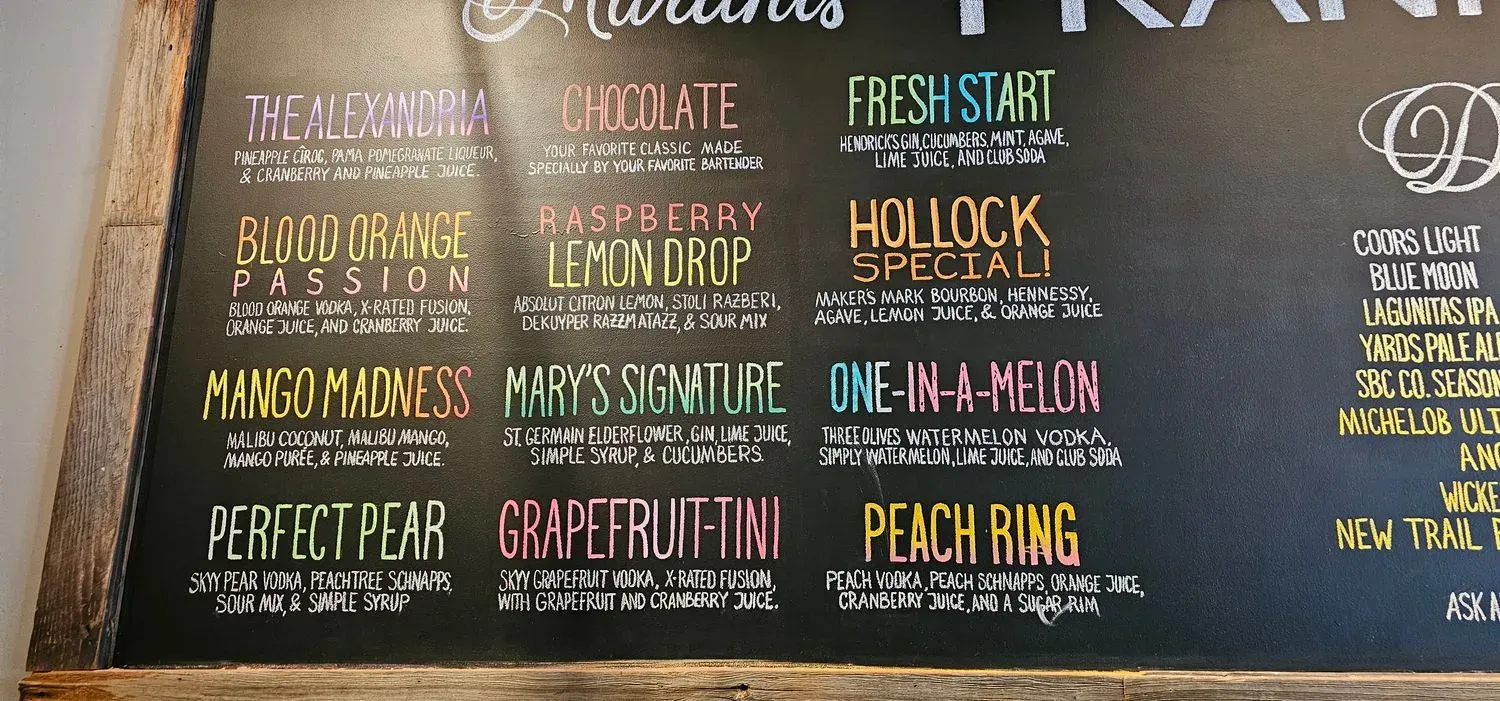 Martinis
THE ALEXANDRIA
PINEAPPLE CÎROC, PAMA POMEGRANATE LIQUEUR,
& CRANBERRY AND PINEAPPLE JUICE.
BLOOD ORANGE
PASSION
BLOOD ORANGE VODKA, X-RATED FUSION,
ORANGE JUICE, AND CRANBERRY JUICE.
MANGO MADNESS
MALIBU COCONUT, MALIBU MANGO,
MANGO PURÉE, & PINEAPPLE JUICE.
PERFECT PEAR
SKYY PEAR VODKA, PEACHTREE SCHNAPPS,
SOUR MIX, & SIMPLE SYRUP
CHOCOLATE
YOUR FAVORITE CLASSIC MADE
SPECIALLY BY YOUR FAVORITE BARTENDER
RASPBERRY
LEMON DROP
ABSOLUT CITRON LEMON, STOLI RAZBERI,
DEKUYPER RAZZMATAZZ, & SOUR MIX
MARY'S SIGNATURE
ST. GERMAIN ELDERFLOWER, GIN, LIME JUICE,
SIMPLE SYRUP, & CUCUMBERS
GRAPEFRUIT-TINI
SKYY GRAPEFRUIT VODKA, X-RATED FUSION,
WITH GRAPEFRUIT AND CRANBERRY JUICE.
FRESH START
HENDRICK'S GIN, CUCUMBERS, MINT, AGAVE,
LIME JUICE, AND CLUB SODA
HOLLOCK
SPECIAL!
MAKER'S MARK BOURBON, HENNESSY,
AGAVE, LEMON JUICE, & ORANGE JUICE
ONE-IN-A-MELON
THREE OLIVES WATERMELON VODKA,
SIMPLY WATERMELON, LIME JUICE, AND CLUB SODA
PEACH RING
PEACH VODKA, PEACH SCHNAPPS, ORANGE JUICE,
CRANBERRY JUICE, AND A SUGAR RIM
D
COORS LIGHT
BLUE MOON
LAGUNITAS IPA
YARDS PALE AL
SBC CO. SEASON
MICHELOB ULT
ANG
WICKE
NEW TRAIL
ASK A